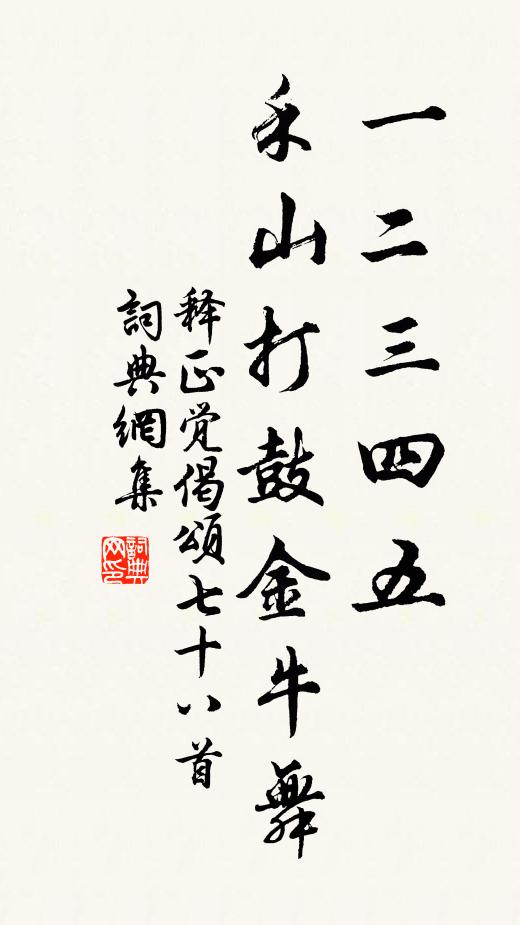 一二三四五
禾山打鼓金牛舞
释正觉偈頌七十八首
詞典網集
詞典网印